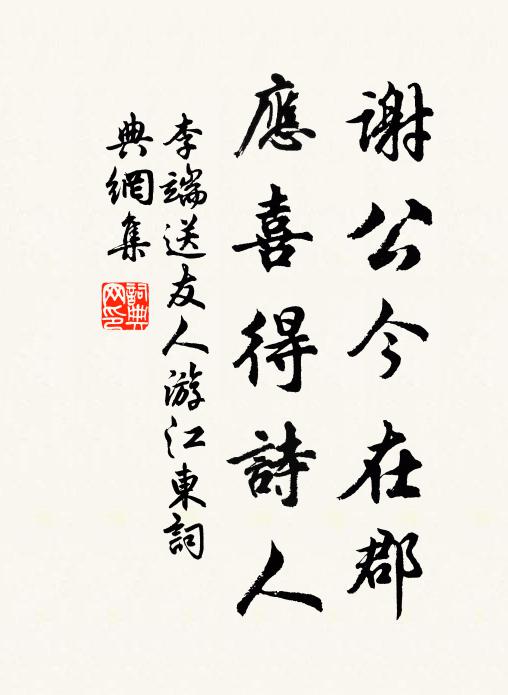 謝公今在郡
應喜得詩人
李端送友人游江東詞
典網集
詞典网印